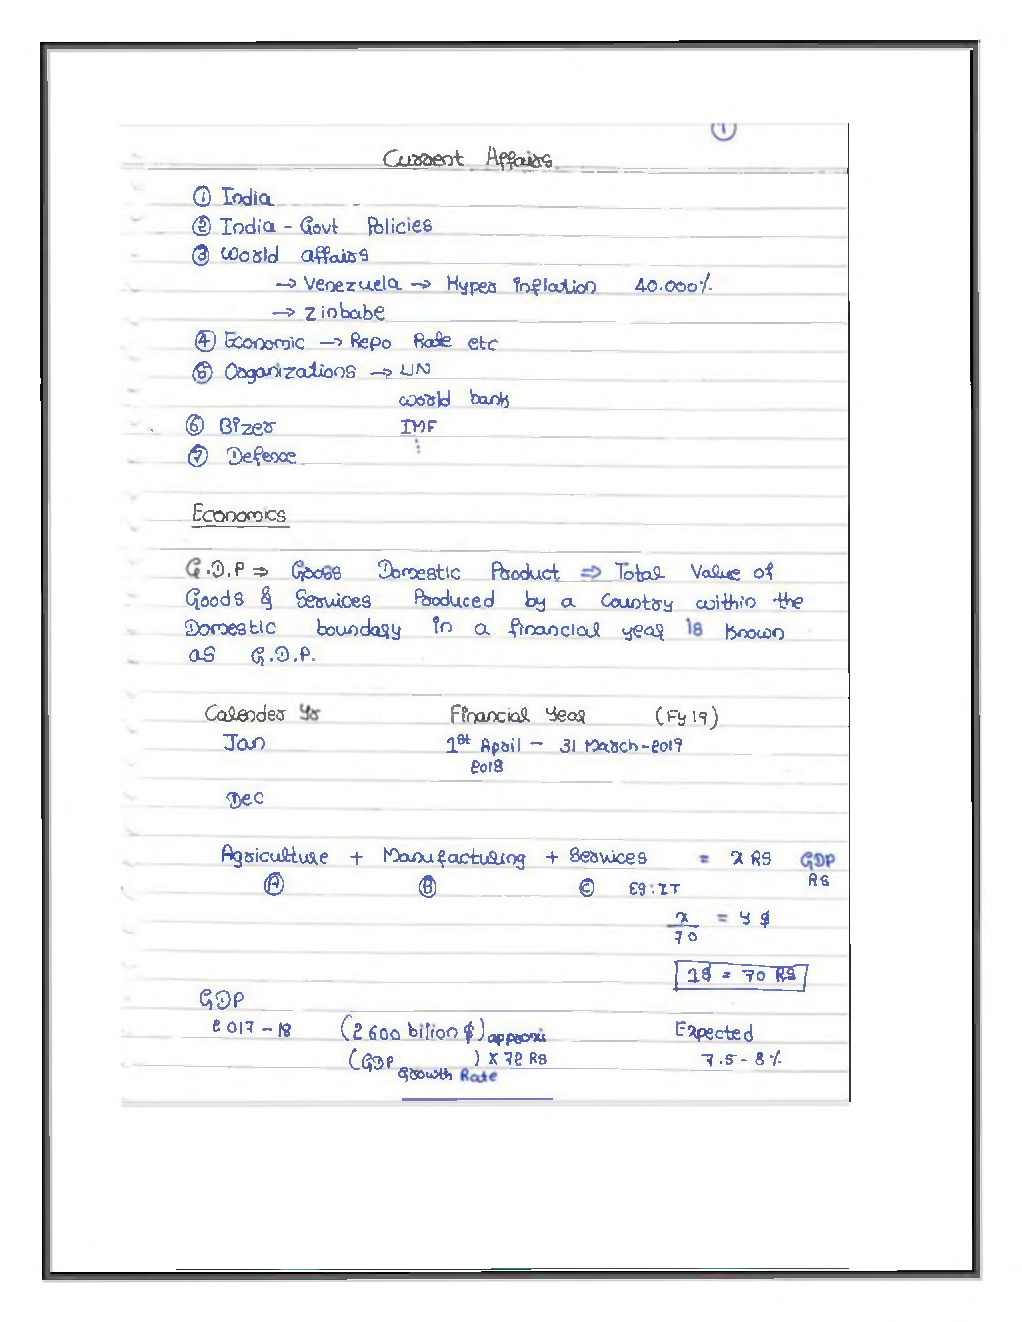 1
Current Affairs
① India
② India - Govt Policies
③ World affairs
→ Venezuela → Hyper inflation 40.000%
→ Zinbabe
④ Economic → Repo Rate etc
⑤ Organizations → UN
world bank
⑥ Bizer IMF
⑦ Defence
Economics
G.D.P ⇒ Gross Domestic Product ⇒ Total Value of
Goods & Services Produced by a Country within the
Domestic boundary in a financial year is known
as G.D.P.
Calender Yr Financial Year (Fy 19)
Jan 1st April - 31 March-2019
2018
Dec
Agriculture + Manufacturing + Services = x RS GDP
Ⓐ Ⓑ Ⓒ Eg: IT RS
x/70 = y $
1$ = 70 RS
GDP
2017-18 (2600 bilion $) approxi Expected
(GDP growth Rate) x 72 RS 7.5 - 8%